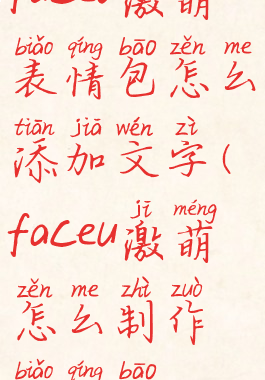 faceu激萌
biǎo qíng bāo zěn me
表情包怎么
tiān jiā wén zì
添加文字(
jī méng
faceu激萌
zěn me zhì zuò
怎么制作
biǎo qíng bāo